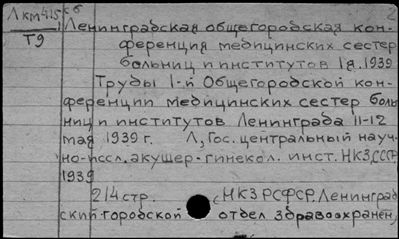 Лкм415сб
Т9
Ленинградская общегородская кон-
ференция медицинских сестер
больниц и институтов 1я.1939
Труды 1-й Общегородской кон-
ференции медицинских сестер боль
ниц и институтов Ленинграда 11-12
мая 1939 г. Л, Гос. центральный науч-
но-иссл. акушер-гинекол. инст. НКЗ,СССР
1939
214 стр. НКЗ РСФСР. Ленинград
ский городской отдел здравоохранен,